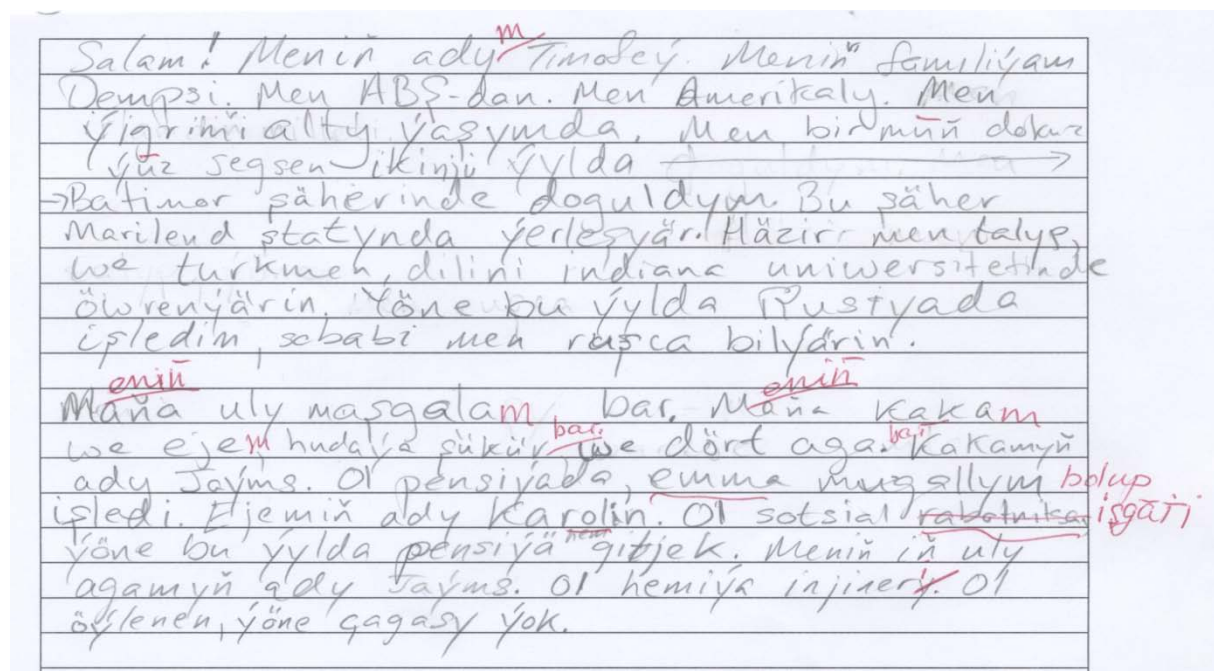 Salam! Meniň adym Timofeý. Meniň familiýam
Dempsi. Men ABŞ-dan. Men Amerikaly. Men
ýigrimi alty ýaşymda. Men bir müň dokuz
ýüz segsen ikinji ýylda →
→ Batimor şäherinde doguldym. Bu şäher
Marilend ştatynda ýerleşýär. Häzir men talyp,
we türkmen dilini indiana uniwersitetinde
öwrenýärin. Ýöne bu ýylda Russiyada
işledim, sebäbi men rusça bilýärin.
eniň eniň
Maňa uly maşgalam bar. Maňa kakam
we ejem hudaýa şükür bar. we dört aga bar. Kakamyň
ady Jaýms. Ol pensiýada, emma mugallym bolup
işledi. Ejemiň ady Karolin. Ol sotsial rabotnika işgäri
ýöne bu ýylda pensiýä hem gitjek. Meniň iň uly
agamyň ady Jaýms. Ol hemiýa injinery. Ol
öýlenen, ýöne çagasy ýok.